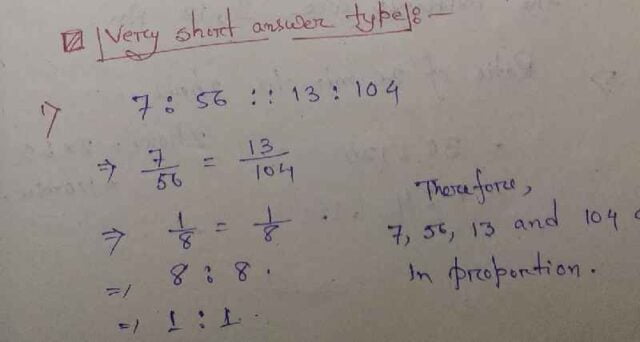 Very short answer type:-
1) 7 : 56 :: 13 : 104
⇒ 7/56 = 13/104
⇒ 1/8 = 1/8 .
⇒ 8 : 8 .
⇒ 1 : 1 .
Therefore,
7, 56, 13 and 104
In proportion .